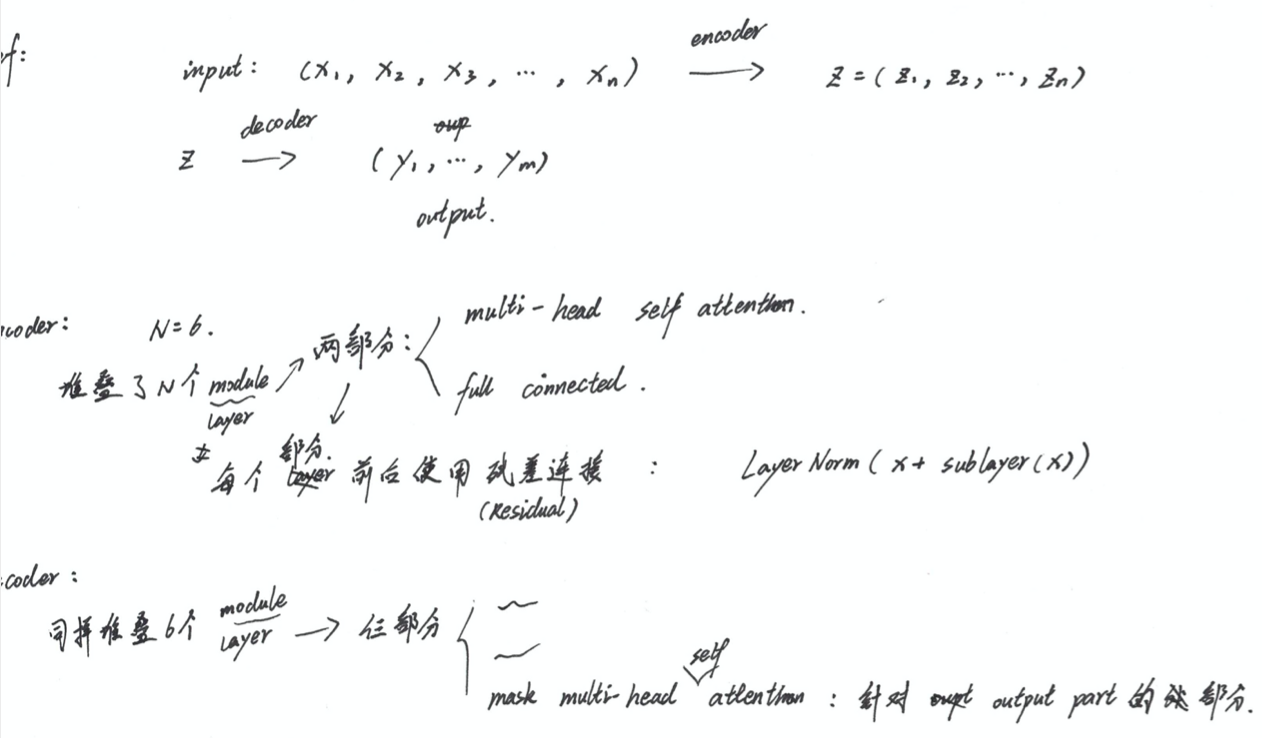 ef:
input: (x₁, x₂, x₃, ⋯, xₙ) encoder ⟶ z = (z₁, z₂, ⋯, zₙ)
z decoder ⟶ (y₁, ⋯, yₘ)
output.
ncoder: N=6.
堆叠了N个 module layer ↗ 两部分: multi-head self attention.
full connected.
每个 部分 前后使用 残差连接 : LayerNorm(x + sublayer(x))
(Residual)
coder:
同样堆叠6个 module layer ⟶ 三部分
mask multi-head self attention : 针对 output part 的 部分.